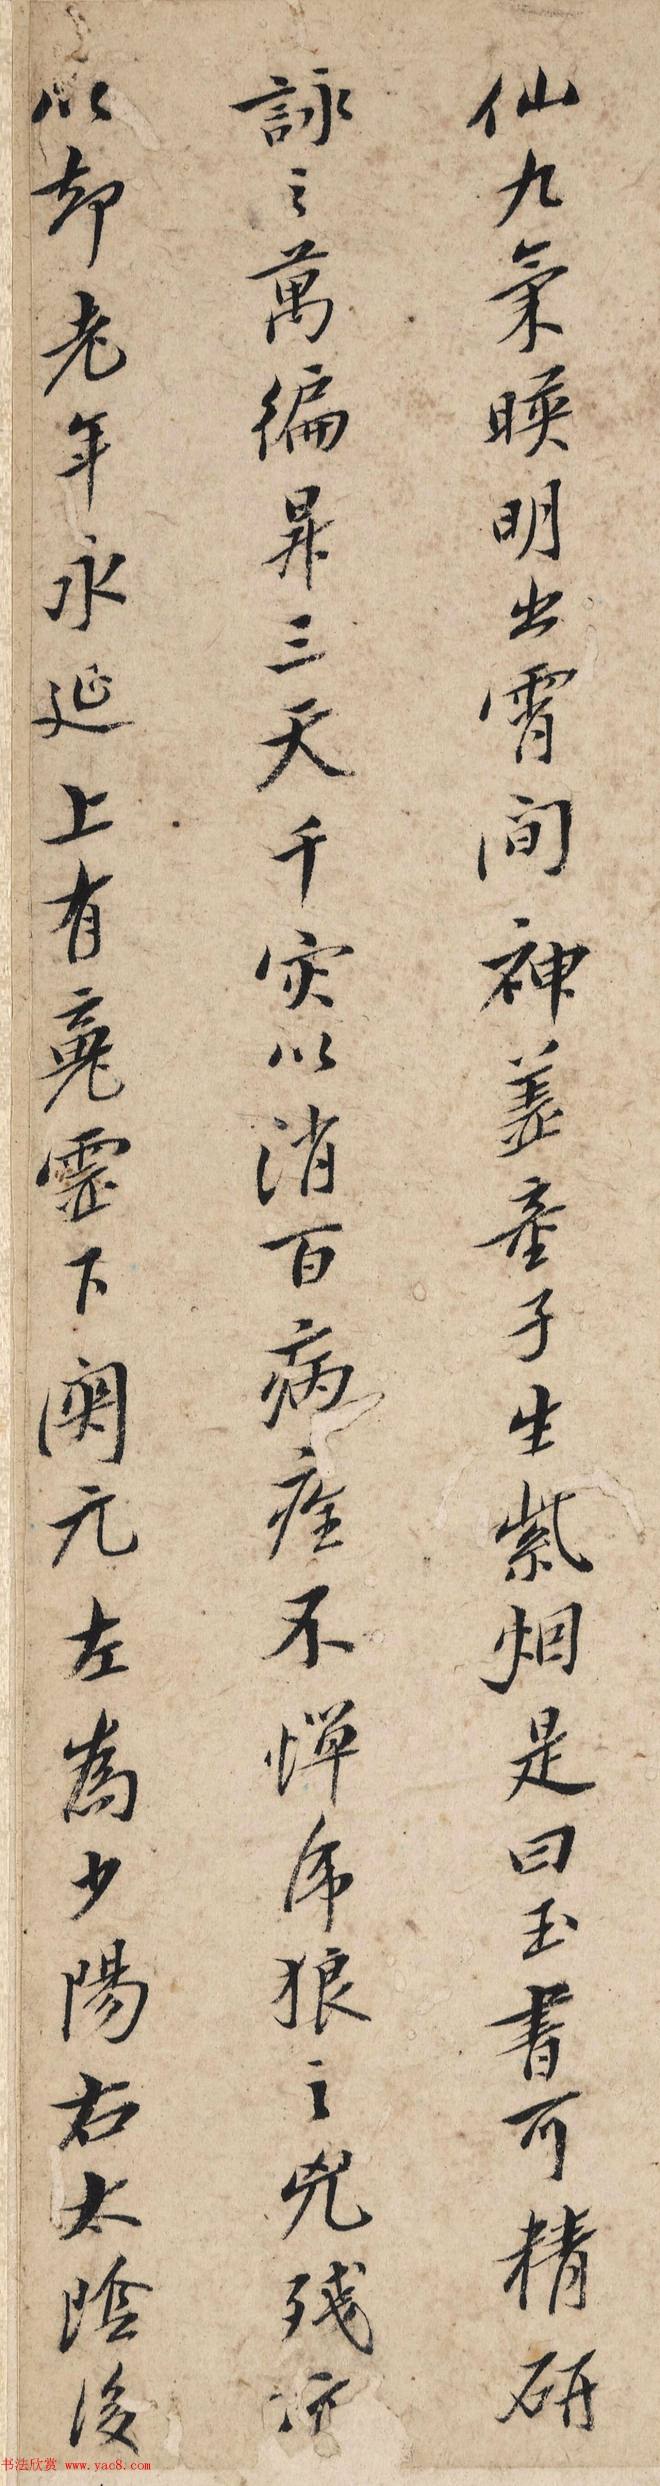 仙九氣暎明出霄間神盖童子生紫烟是曰玉書可精研
詠之萬徧昇三天千灾以消百病痊不憚虎狼之兇殘亦
以却老年永延上有䰟靈下関元左為少陽右太陰後
书法欣赏 www.yac8.com